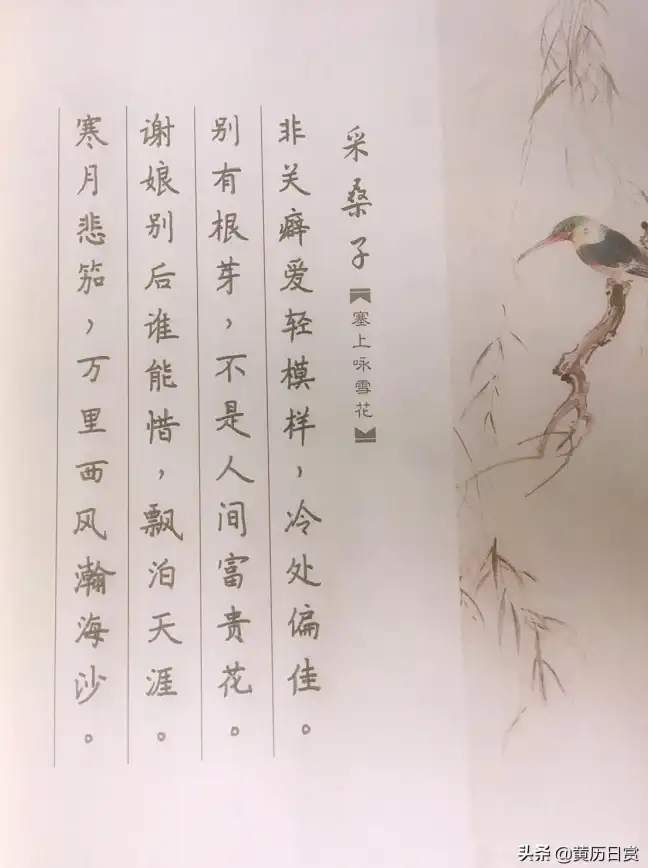 采桑子
塞上咏雪花
非关癖爱轻模样，冷处偏佳。
别有根芽，不是人间富贵花。
谢娘别后谁能惜，飘泊天涯。
寒月悲笳，万里西风瀚海沙。
头条 @黄历日赏